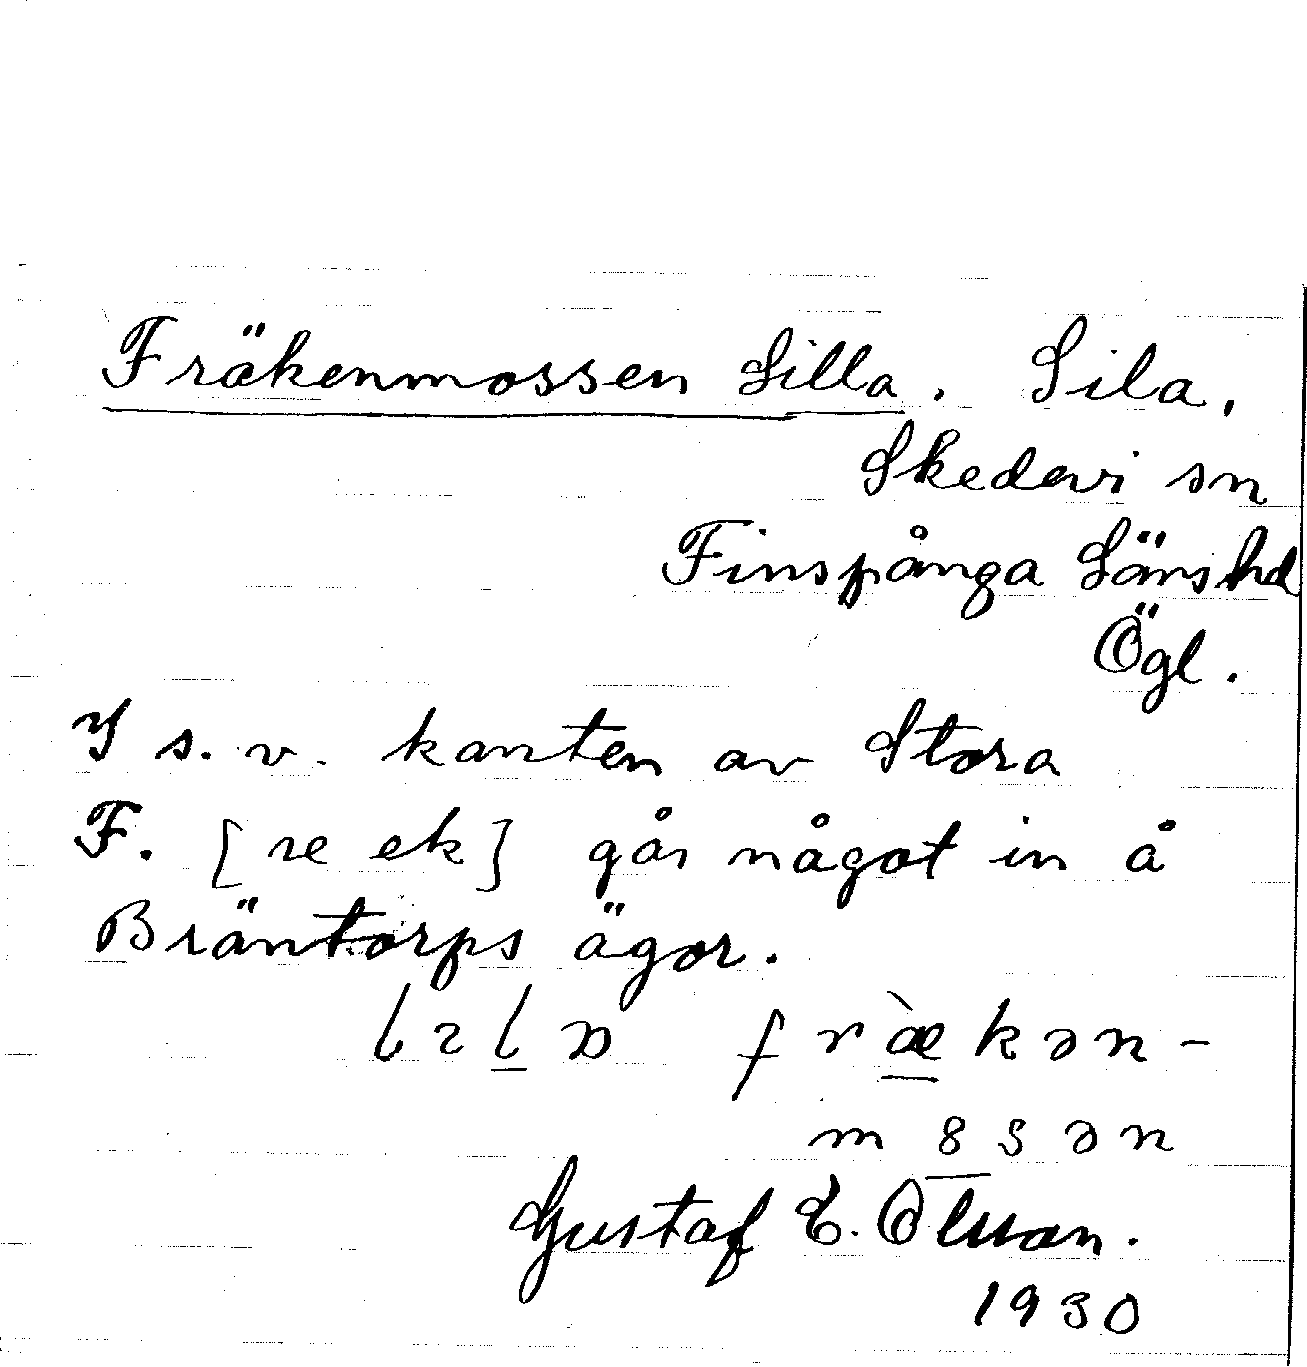 Fräkenmossen Lilla. Sila,
Skedevi sn
Finspånga Läns hd
Ögl.
I s.v. kanten av Stora
F. [se ek] går något in å
Bräntorps ägor.
fr<u>æ̀</u>kən-
məsən
Gustaf E. Olsson.
1930